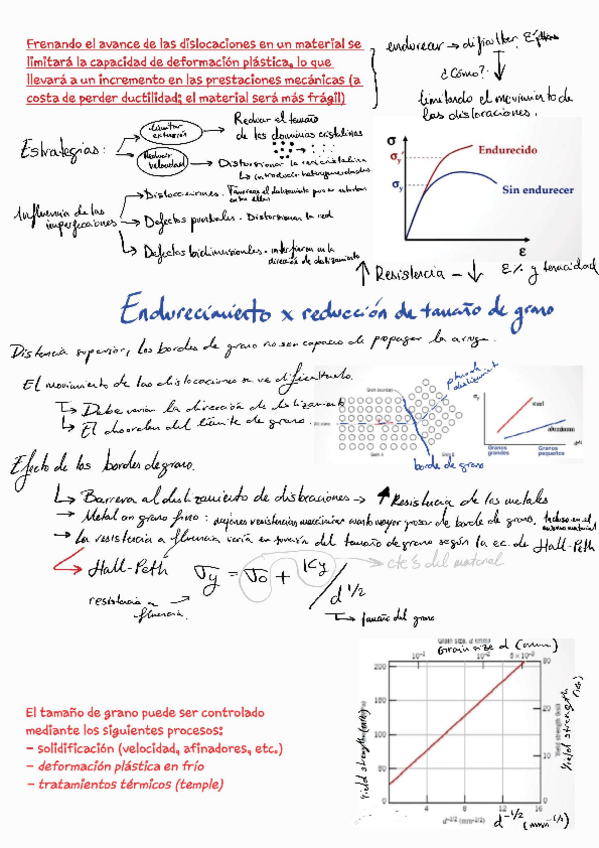 Frenando el avance de las dislocaciones en un material se
limitará la capacidad de deformación plástica, lo que
llevará a un incremento en las prestaciones mecánicas (a
costa de perder ductilidad; el material será más frágil)
endurecer → dificultar
¿Cómo?
limitando el movimiento de
las dislocaciones.
Estrategias:
limitar extensión
Reducir el tamaño
de los dominios cristalinos
Reducir velocidad
Distorsionar la red cristalina
↳ introducir heterogeneidades
Influencia de las
imperfecciones
Dislocaciones.
entre ellas
Defectos puntuales. Distorsionan la red
Defectos bidimensionales. interfieren en la
dirección de deslizamiento
σ
σy'
σy
Endurecido
Sin endurecer
ε
↑ Resistencia – ↓ ε% y tenacidad
Endurecimiento x reducción de tamaño de grano
Distancia superior, los bordes de grano no son capaces de propagar la arruga.
El movimiento de las dislocaciones se ve dificultado.
↳ Debe variar la dirección de deslizamiento
↳ El desorden del límite de grano.
plano de
deslizamiento
Grain boundary
Slip plane
Grain A
Grain B
borde de grano
σy
steel
aluminum
Granos
grandes
Granos
pequeños
Efecto de los bordes de grano.
↳ Barrera al deslizamiento de dislocaciones → ↑ Resistencia de los metales
→ Metal con grano fino: mejores resistencias mecánicas cuanto mayor borde de grano. Incluso en el
mismo material
→ La resistencia a fluencia varía en función del tamaño de grano según la ec. de Hall-Peth
Hall-Peth
σy = σo + Ky / d^1/2
→ ctes del material
resistencia a
fluencia.
↳ tamaño del grano
El tamaño de grano puede ser controlado
mediante los siguientes procesos:
– solidificación (velocidad, afinadores, etc.)
– deformación plástica en frío
– tratamientos térmicos (temple)
Grain size, d (mm)
Grain size d (mm)
10⁻¹ 10⁻² 5 × 10⁻³
200
150
100
50
0
30
20
10
0
Yield strength (MPa)
Yield strength (ksi)
Yield strength (ksi)
4 8 12 16
d^-1/2 (mm^-1/2)
d^-1/2 (mm^-1/2)